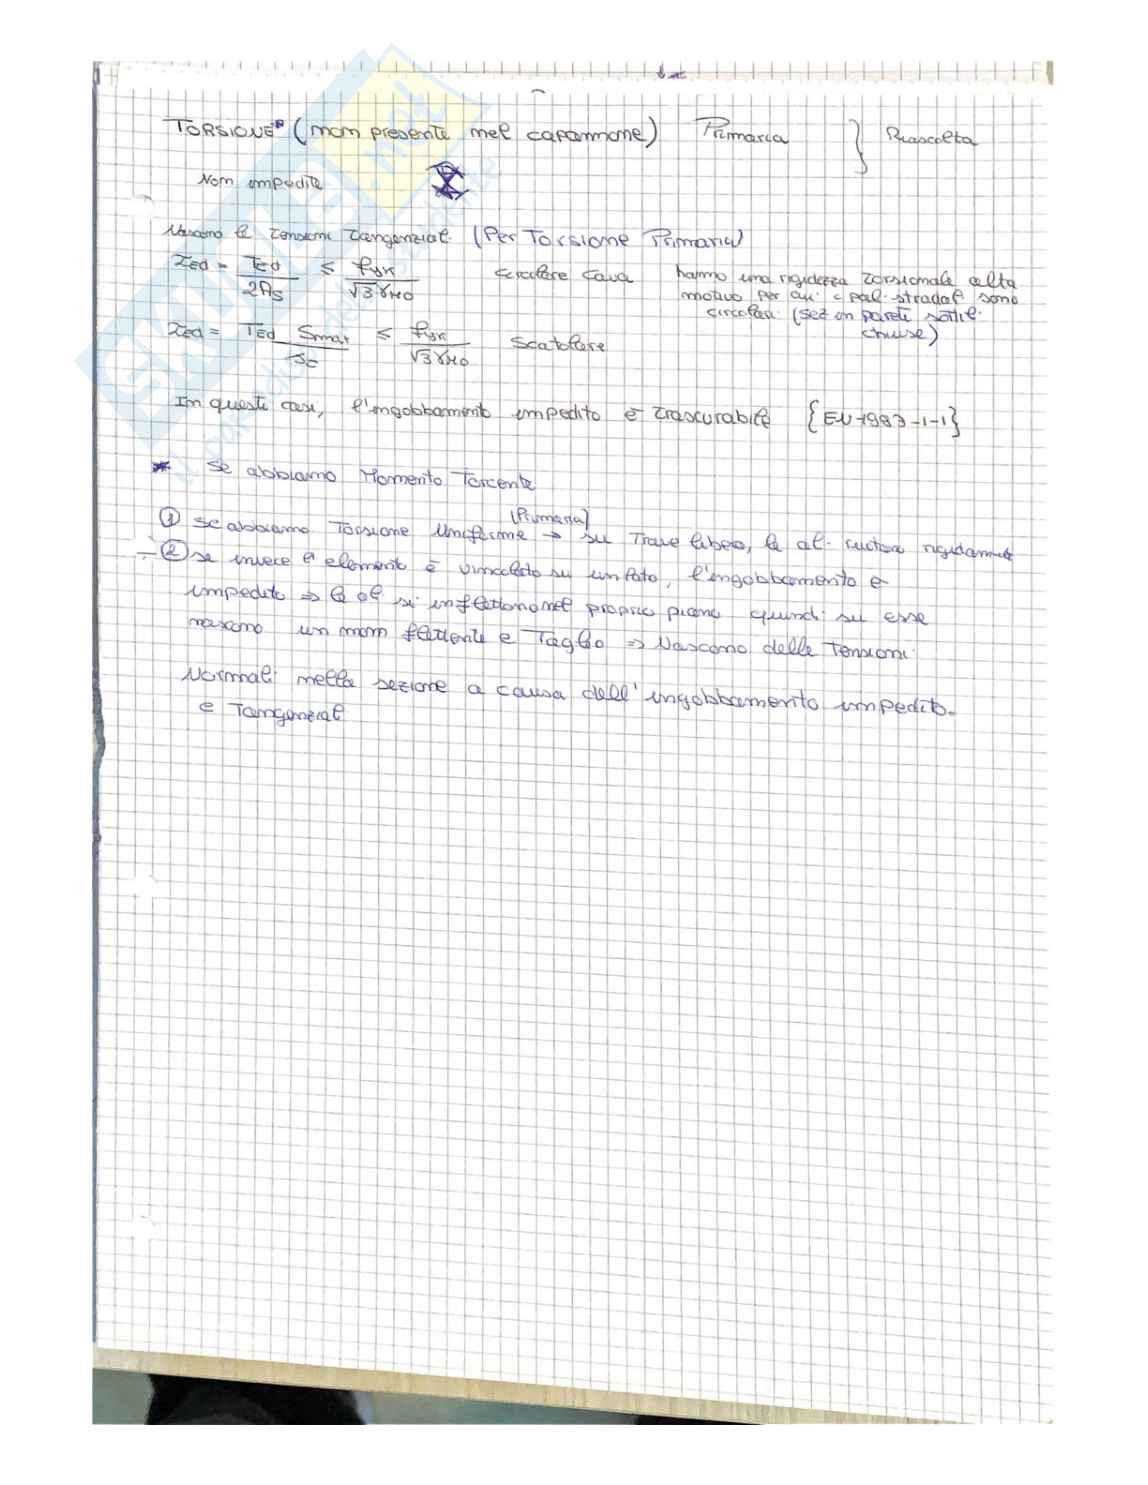 TORSIONE* (non presente nel capannone) Primaria } Riascolta
Non impedita
Nascono le Tensioni Tangenziali (Per Torsione Primaria)
τEd = TEd / 2AS ≤ fyk / √3 γM0 circolare cava hanno una rigidezza Torsionale alta
motivo per cui i pali stradali sono
circolari (sez in pareti sottili
chiuse)
τEd = TEd Smax / Jc ≤ fyk / √3 γM0 Scatolare
In questi casi, l'ingobbamento impedito è trascurabile {EN-1993-1-1}
* Se abbiamo Momento Torcente
(Primaria)
① se abbiamo Torsione Uniforme → su Trave libera, le ali ruotano rigidamente
② se invece l'elemento è vincolato su un lato, l'ingobbamento è
impedito ⇒ le ali si inflettono nel proprio piano quindi su esse
nascono un mom flettente e Taglio ⇒ Nascono delle Tensioni
Normali nella sezione a causa dell'ingobbamento impedito.
e Tangenziali
SKUOLA.net